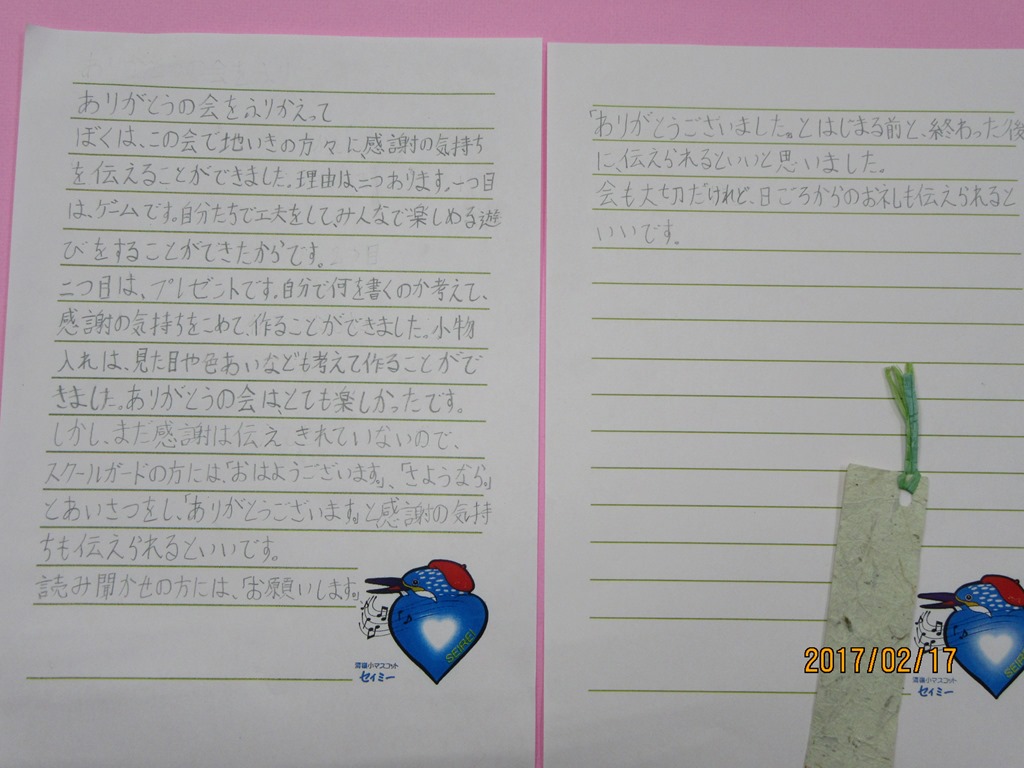 ありがとうの会をふりかえって
ぼくは、この会で地いきの方々に、感謝の気持ち
を伝えることができました。理由は、二つあります。一つ目
は、ゲームです。自分たちで工夫をして、みんなで楽しめる遊
びをすることができたからです。
二つ目は、プレゼントです。自分で何を書くのか考えて、
感謝の気持ちをこめて、作ることができました。小物
入れは、見た目や色あいなども考えて作ることがで
きました。ありがとうの会は、とても楽しかったです。
しかし、まだ感謝は伝えきれていないので、
スクールガードの方には、「おはようございます。」、「さようなら。」
とあいさつをし、「ありがとうございます。」と感謝の気持
ちも伝えられるといいです。
読み聞かせの方には、「お願いします。」、
SEIREI
小マスコット
セイミー
「ありがとうございました。」とはじまる前と、終わった後
に、伝えられるといいと思いました。
会も大切だけれど、日ごろからのお礼も伝えられると
いいです。
SEIREI
小マスコット
セイミー
2017/02/17